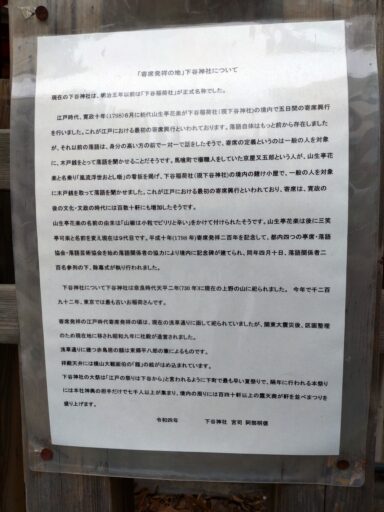 「寄席発祥の地」下谷神社について
現在の下谷神社は、明治五年以前は「下谷稲荷社」が正式名称でした。
江戸時代、寛政十年(1798)6月に初代山生亭花楽が下谷稲荷社(現下谷神社)の境内で五日間の寄席興行
を行いました。これが江戸における最初の寄席興行といわれております。落語自体はもっと前から存在しました
が、それ以前の落語は、身分の高い方の前で一対一で話をしたそうで、寄席の定義というのは一般の人を対象
に、木戸銭をとって落語を聞かせることだそうです。馬喰町で櫛職人をしていた京屋又五郎という人が、山生亭花
楽と名乗り「風流浮世おとし噺」の看板を掲げ、下谷稲荷社(現下谷神社)の境内の賭け小屋で、一般の人を対象
に木戸銭を取って落語を聞かせました。これが江戸における最初の寄席興行といわれており、寄席は、寛政の
後の文化・文政の時代には百数十軒にも増加したそうです。
山生亭花楽の名前の由来は「山椒は小粒でピリリと辛い」をかけて付けられたそうです。山生亭花楽は後に三笑
亭可楽と名前を変え現在は9代目です。平成十年(1798年)寄席発祥二百年を記念して、都内四つの亭席・落語
協会・落語芸術協会を始め落語関係者の協力により境内に記念碑が建てられ、同年四月十日、落語関係者二
百名参列の下、除幕式が執り行われました。
下谷神社について下谷神社は奈良時代天平二年(730年)に現在の上野の山に祀られました。 今年で千二百
九十二年、東京では最も古いお稲荷さんです。
寄席発祥の江戸時代寄席発祥の頃は、現在の浅草通りに面して祀られていましたが、関東大震災後、区画整理
のため現在地に移され昭和九年に社殿が造営されました。
浅草通りに建つ大鳥居の額は東郷平八郎の書によるものです。
拝殿天井には横山大観画伯の「龍」の絵がはめ込まれています。
下谷神社の大祭は「江戸の祭りは下谷から」と言われるように下町で最も早い夏祭りで、隔年に行われる本祭り
には本社神輿の担手だけで七千人以上が集まり、境内の周りには百四十軒以上の露天商が軒を並べまつりを
盛り上げます。
令和四年 下谷神社 宮司 阿部明徳